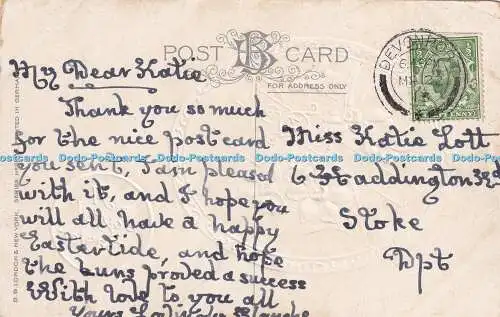 POST CARD
FOR ADDRESS ONLY
DEVONPORT
My Dear Katie
Thank you so much
for the nice postcard
you sent, I am pleased
with it, and I hope you
will all have a happy
Eastertide, and hope
the buns proved a success
With love to you all
Yours
Miss Katie Lott
Haddington Rd
Stoke
Dpt
Dodo-Postcards Dodo-Postcards Dodo-Postcards Dodo-Postcards Dodo-Postcards